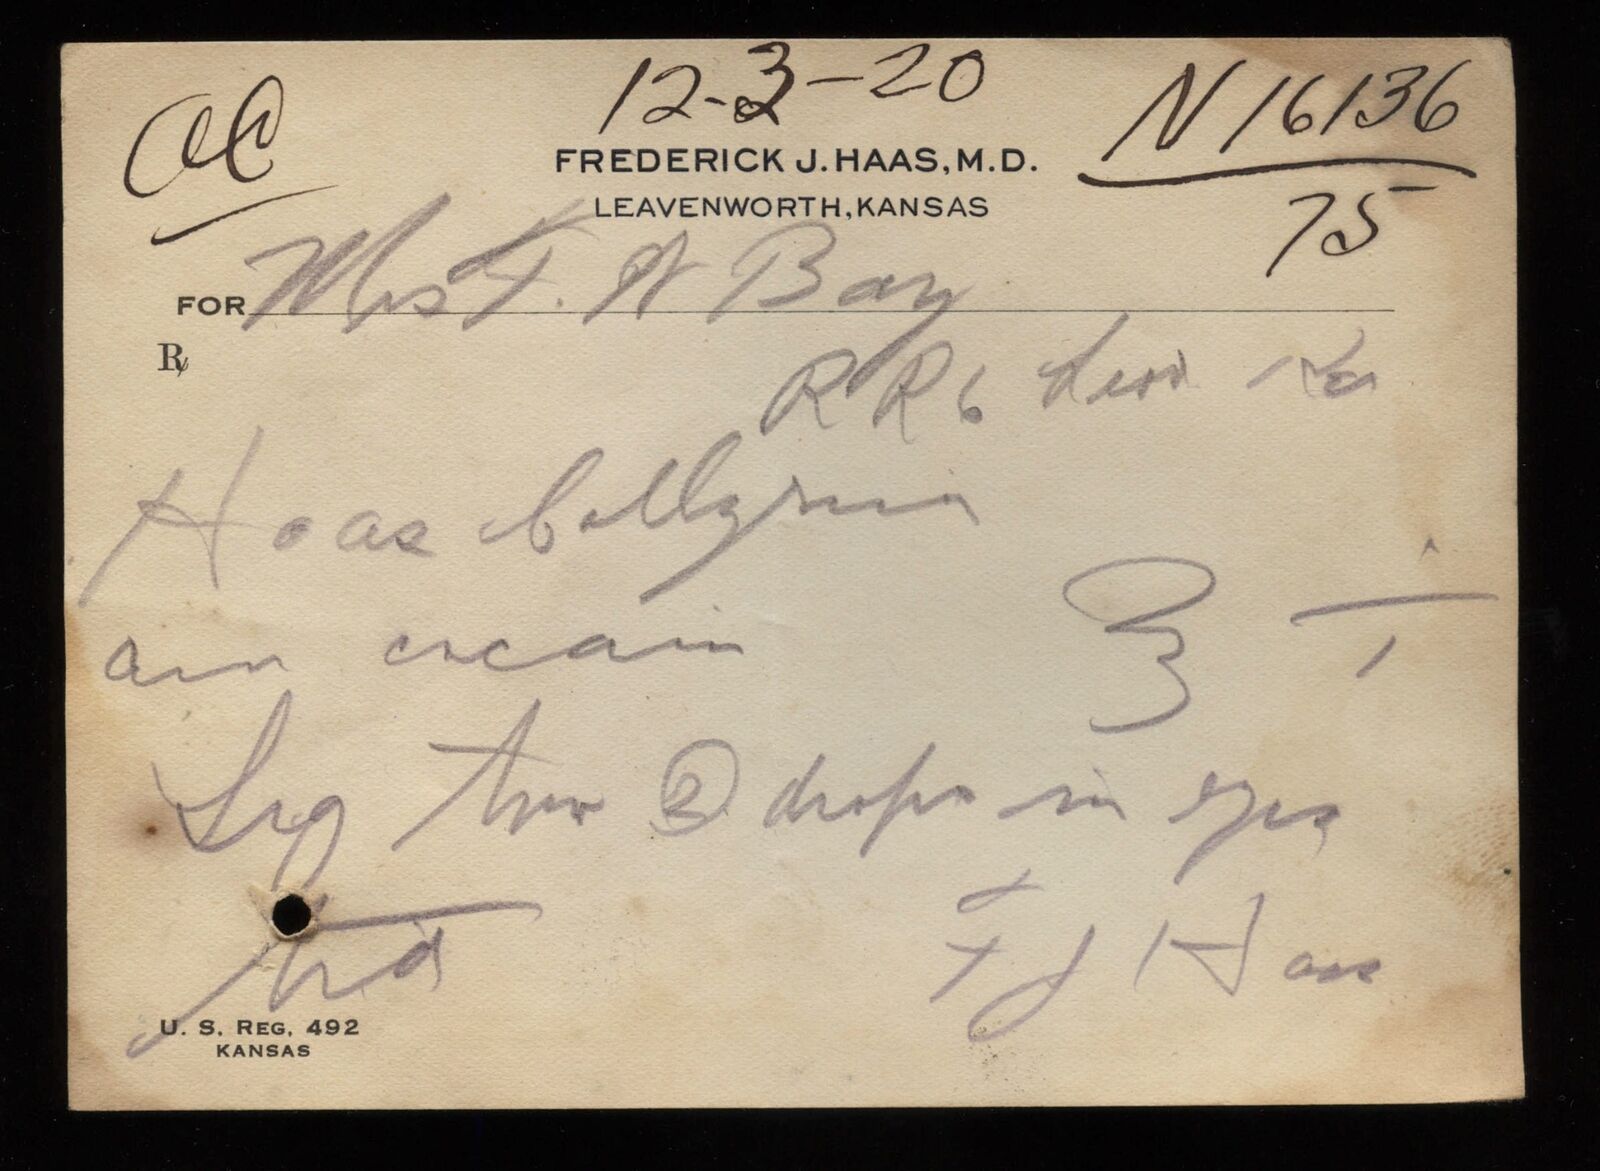 12-3-20
N 16136
FREDERICK J. HAAS, M.D.
LEAVENWORTH, KANSAS
75
FOR Mrs F. W Bay
℞
R R 6 Leav Ka
Haas Collyrium
Sig two ② drops in eyes
F J Haas
U. S. REG. 492
KANSAS